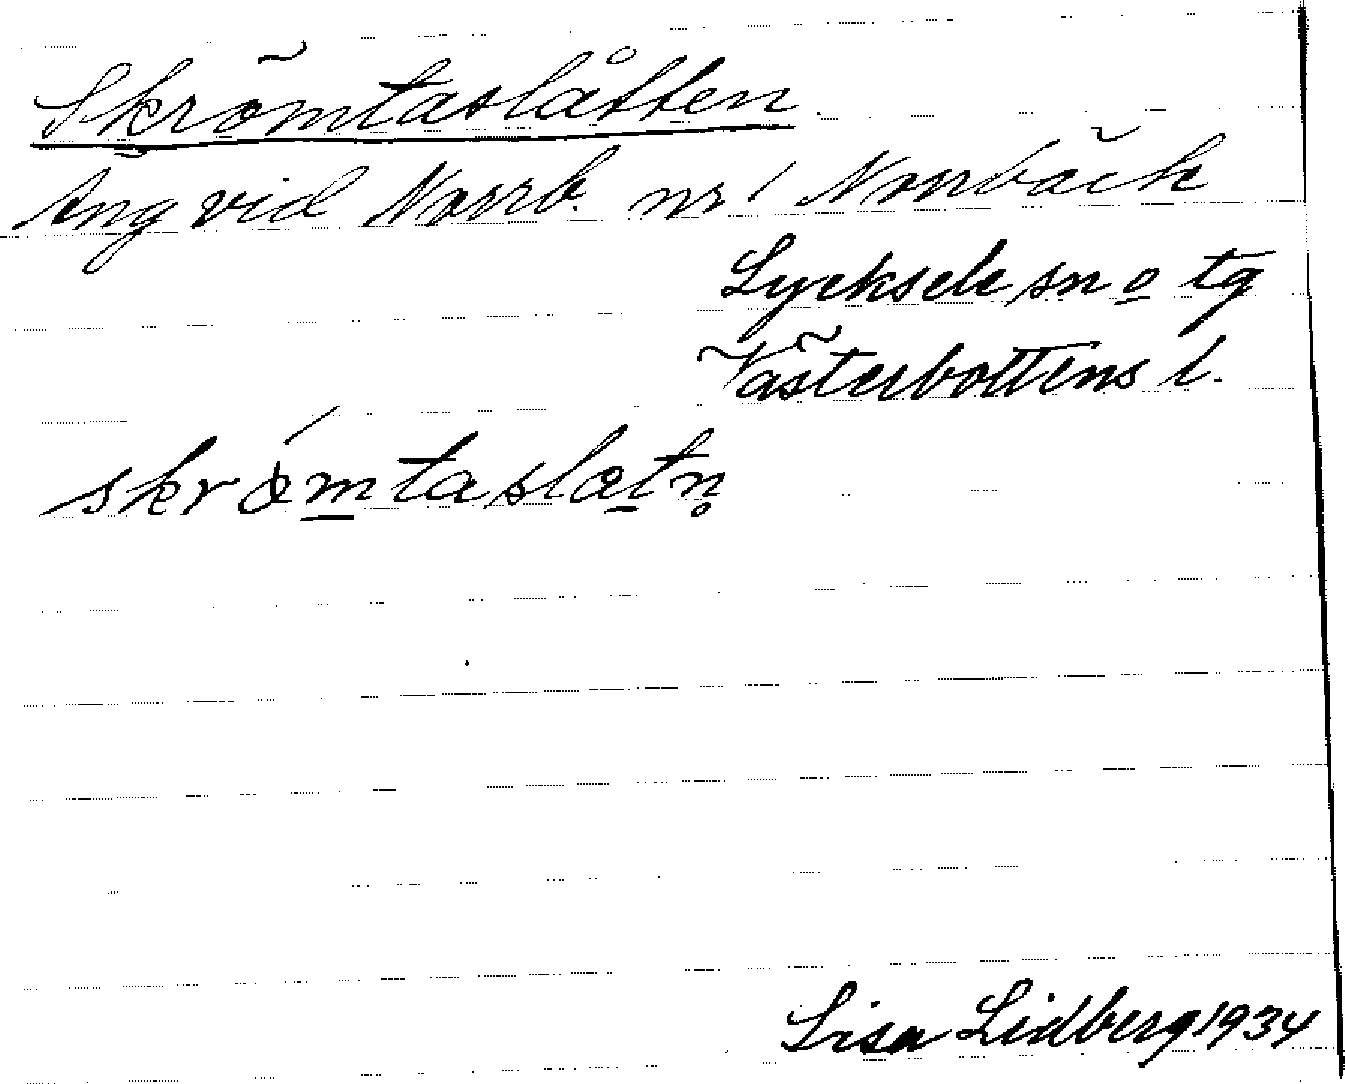 Skrömtaslåtten
Äng vid Norrb. nr 1 Norrbäck
Lycksele sn o tg
Västerbottens l.
skrǿmtaslætn̥
Lisa Lidberg 1934